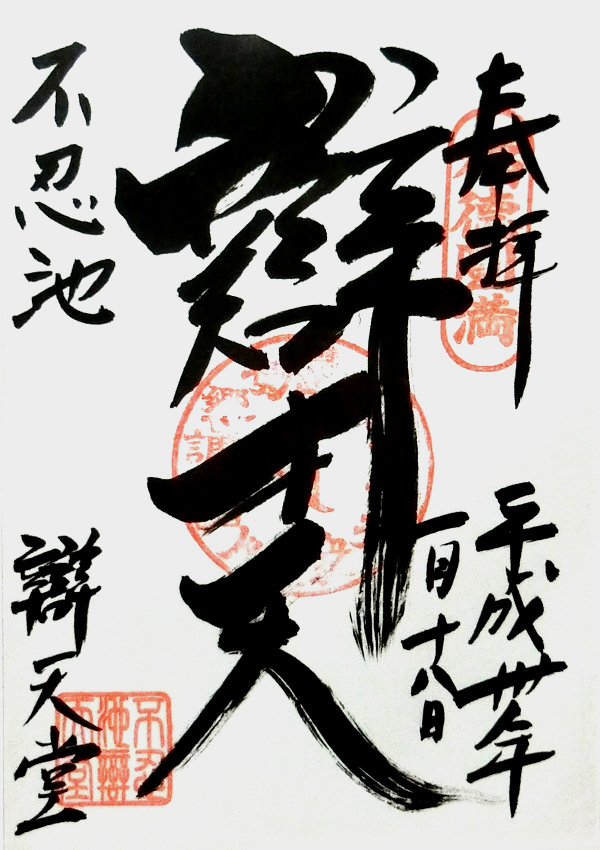 奉拝
平成卅年
一月十八日
辯才天
不忍池
辯天堂
不忍
池辯
天堂